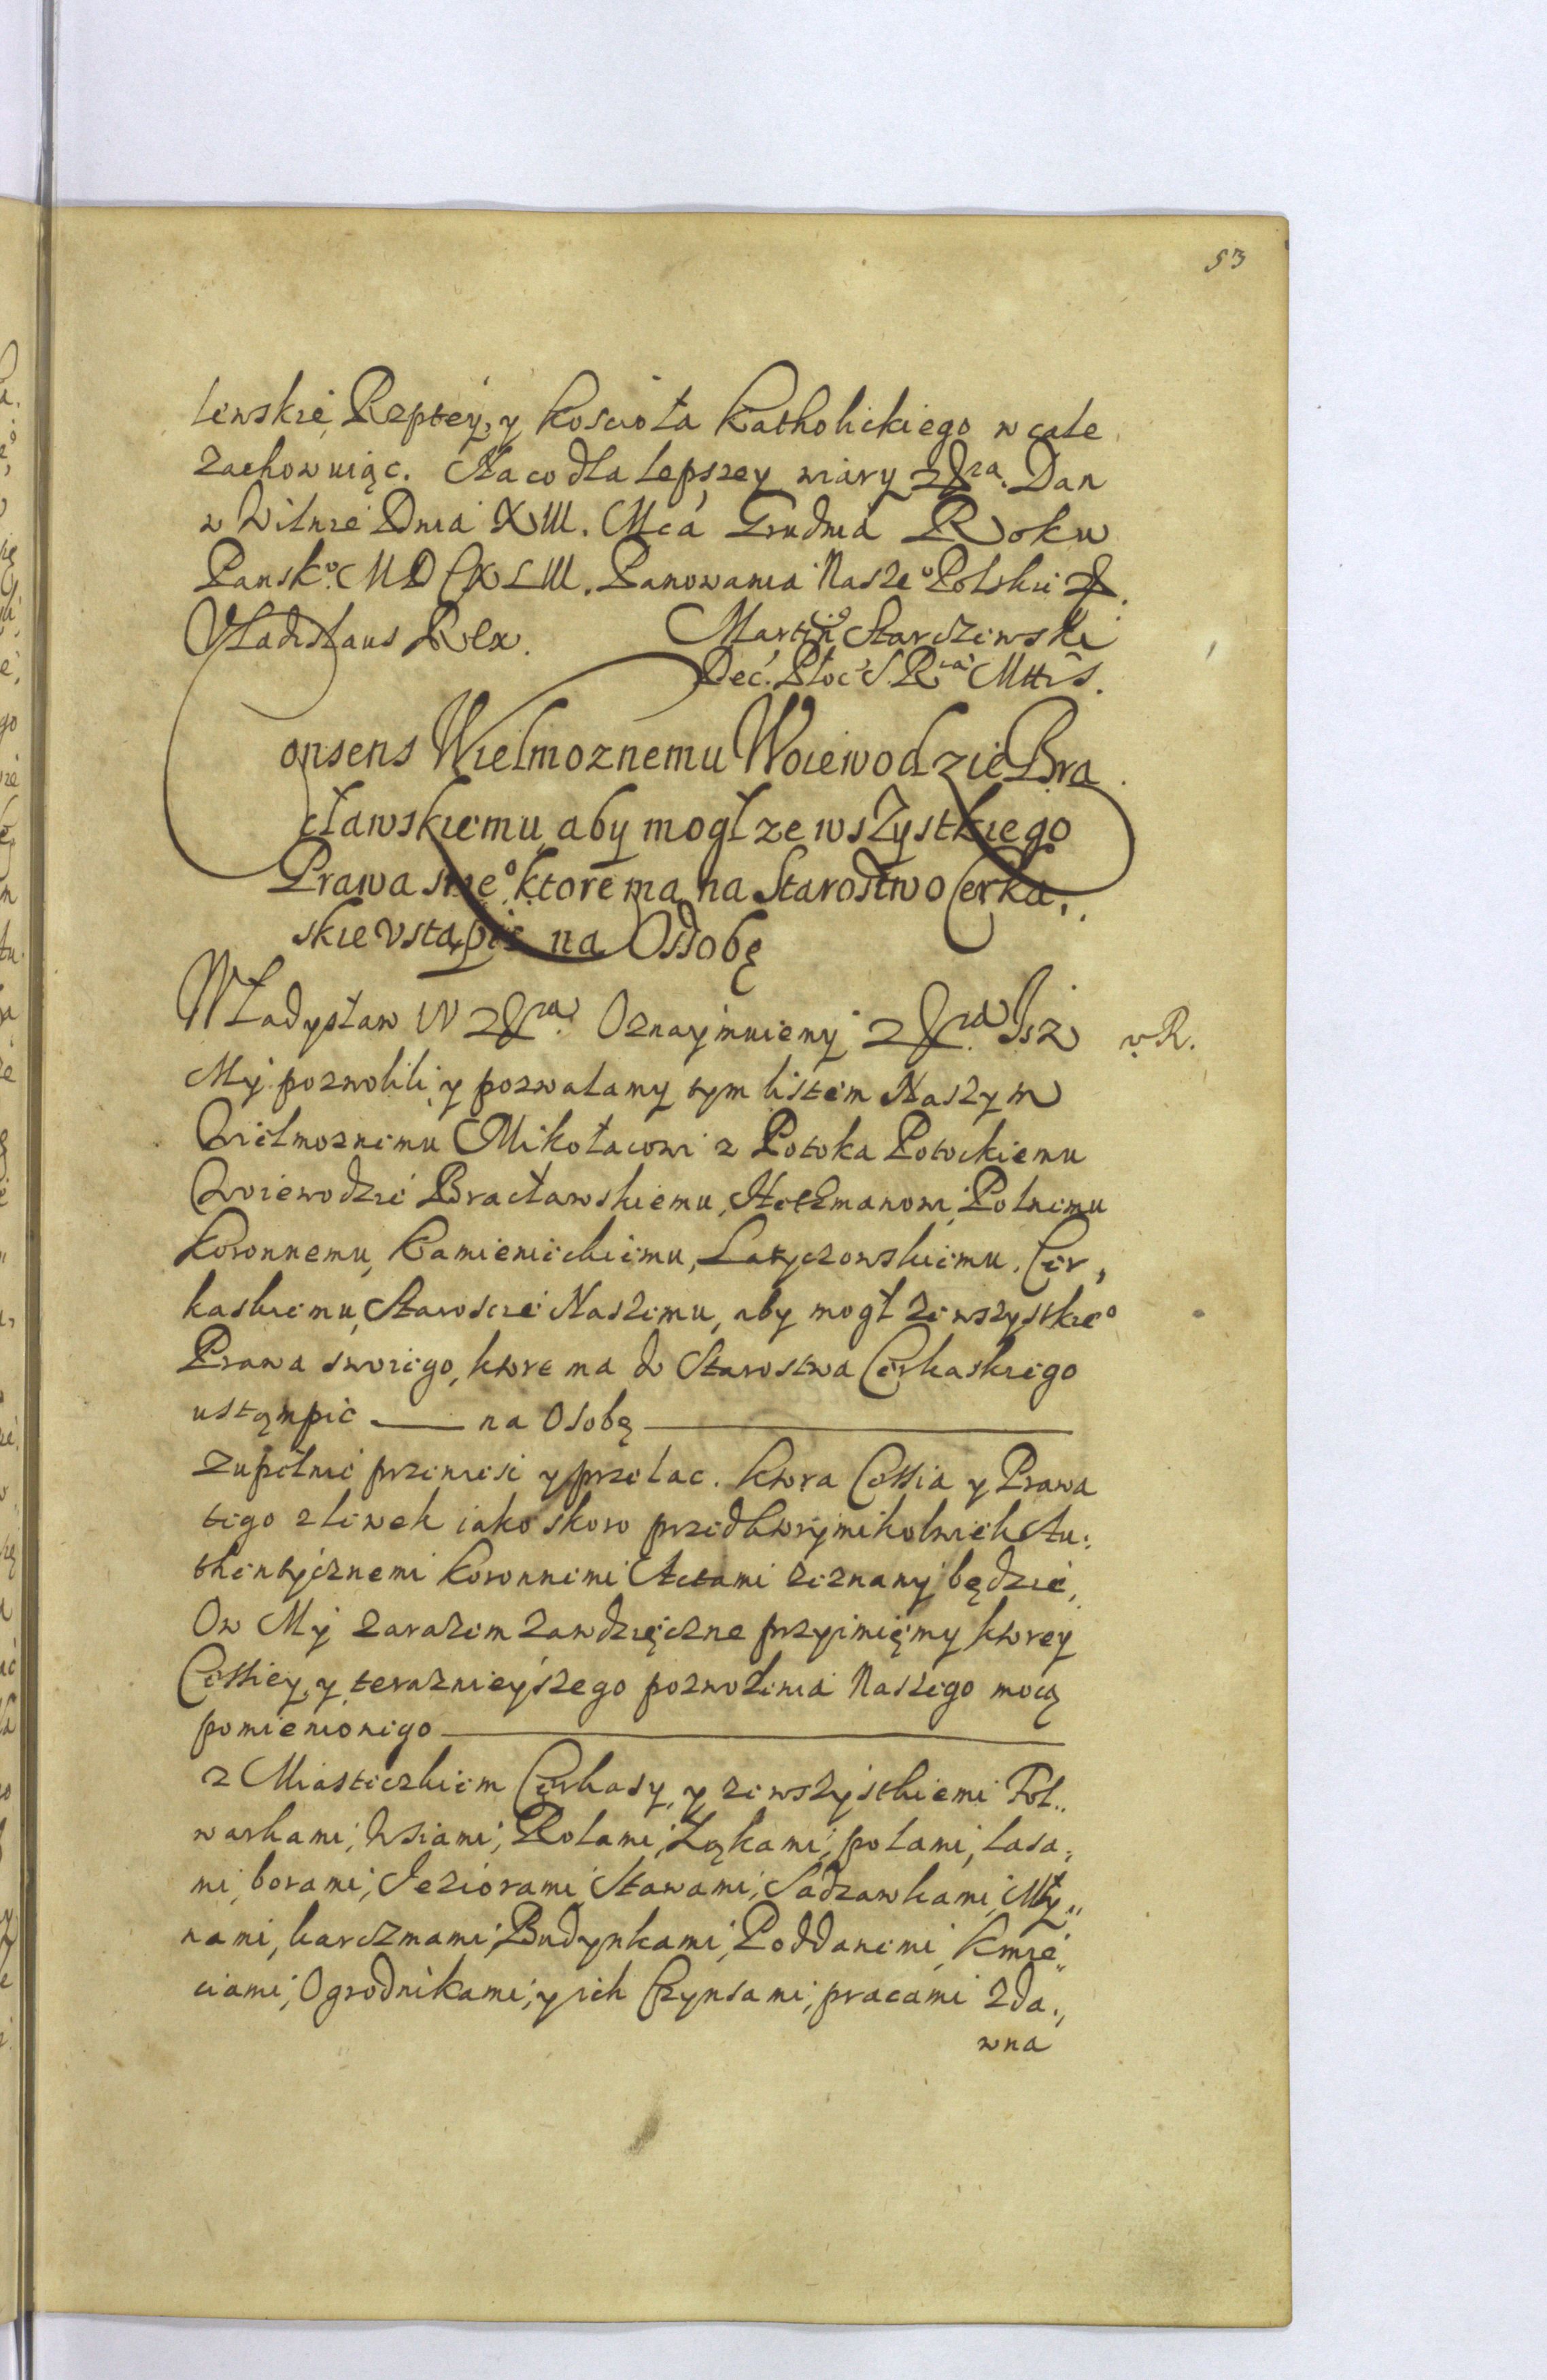 53
lewskie, Rzptey, y Kościoła Katholickiego w cale
zachowuiąc. Na co dla lepszey wiary &ra. Dan
w Wilnie Dnia XIII. Mca Grudnia Roku
Pansko. MDCXLIII. Panowania Naszeo Polskie &.
Vladislaus Rex. Martin9 Starczewski
Dec. Płoc. S. Ria Mttis.
Consens Wielmoznemu Woiewodzie Bra
cławskiemu, aby mogł ze wszystkiego
Prawa sweo, ktore ma na Starostwo Cerka,
skie vstąpić na Ossobę
Władysław IV &ra. Oznaymuiemy &ra. Isz
v. R.
My pozwolili y pozwalamy tym listem Naszym
Wielmoznemu Mikołaiowi z Potoka Potockiemu
Woiewodzie Bracławskiemu, Hetmanowi Polnemu
Koronnemu, Kamienieckiemu, Latyczowskiemu, Cer,
kaskiemu, Staroscie Naszemu, aby mogł ze wszystkieo
Prawa swoiego, ktore ma do Starostwa Cerkaskiego
ustąmpic —— na Osobę ——
zupełnie przeniesc y przelac. Ktora Cessia y Prawa
tego zlewek iako skoro przed ktorymikolwiek Au:
thentycznemi Koronnemi Actami zeznany będzie,
On My zarazem za wdzięczne przyimięmy ktorey
Cessiey, y teraznieyszego pozwolenia Naszego mocą
pomienionego ——
z Miasteczkiem Cerkasy, y ze wszystkiemi Fol„
warkami, Wsiami, Rolami, Łąkami, polami, lasa,
mi, borami, Jeziorami, Stawami, Sadzawkami, Mły„
nami, karczmami, Budynkami, Poddanemi, Kmie„
ciami, Ogrodnikami, y ich Czynsami, pracami zda„
wna